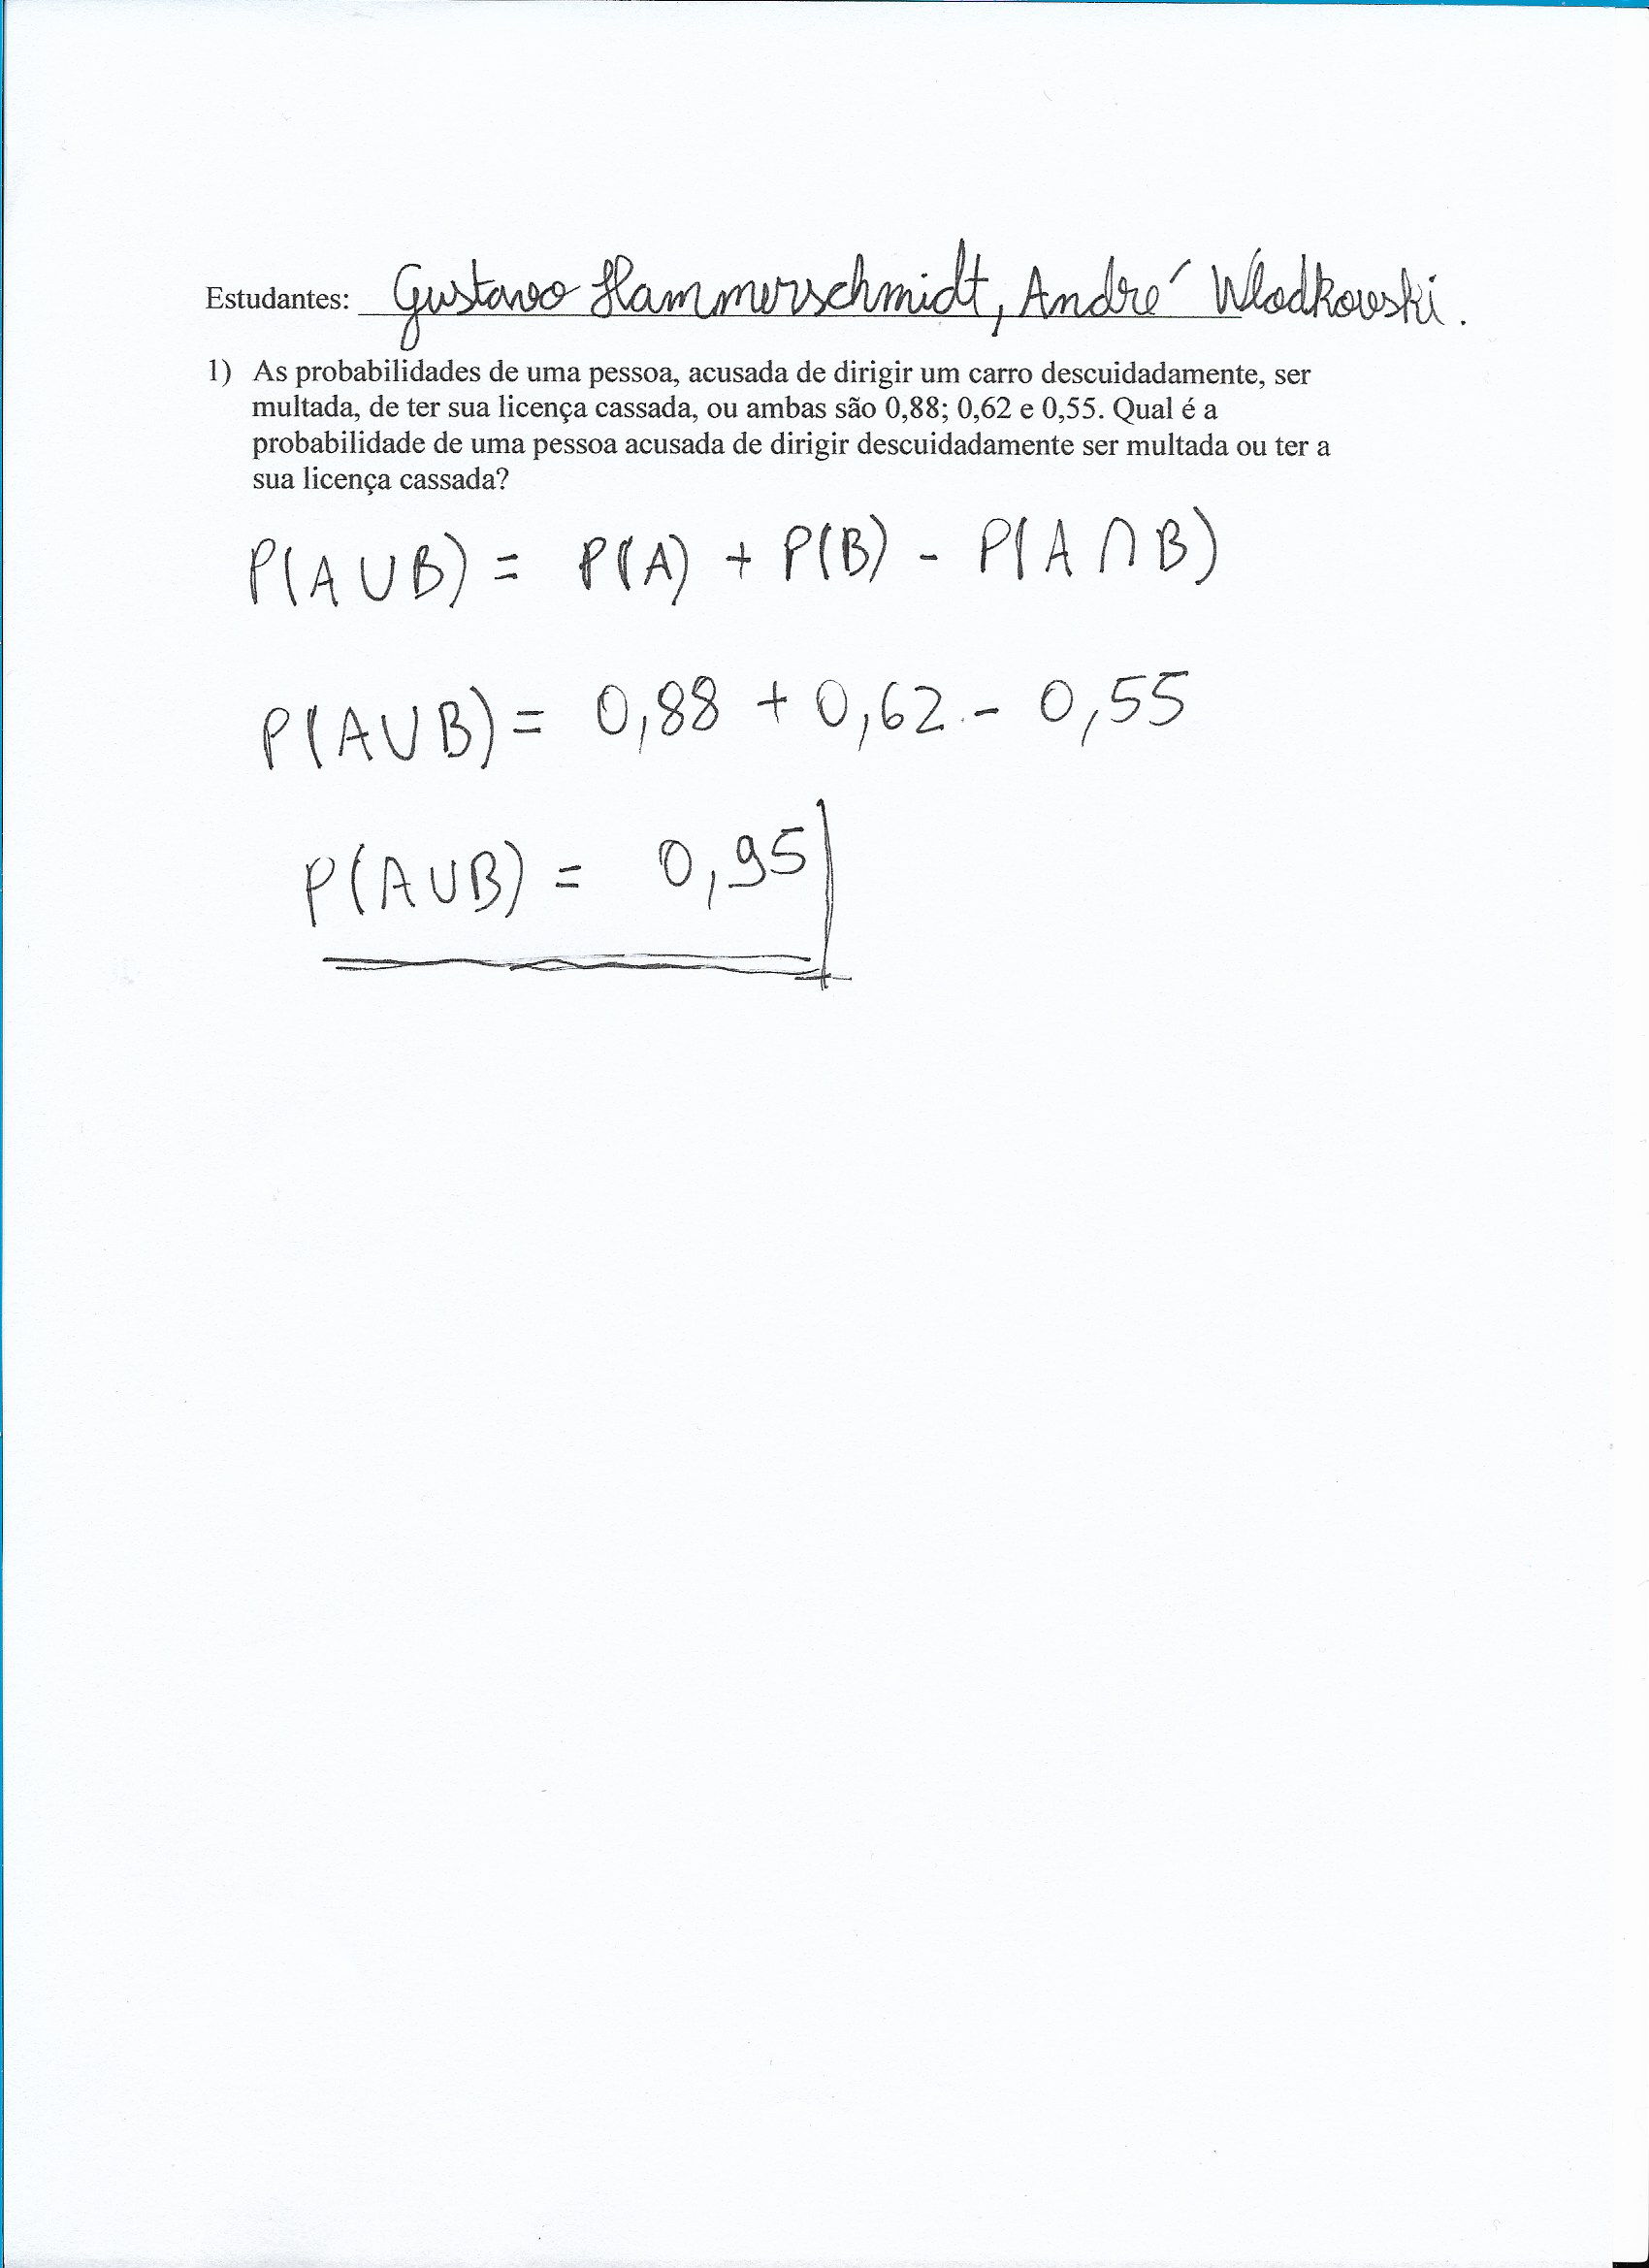 Estudantes: Gustavo Hammerschmidt, André Wlodkowski.
1) As probabilidades de uma pessoa, acusada de dirigir um carro descuidadamente, ser
multada, de ter sua licença cassada, ou ambas são 0,88; 0,62 e 0,55. Qual é a
probabilidade de uma pessoa acusada de dirigir descuidadamente ser multada ou ter a
sua licença cassada?
P(A∪B) = P(A) + P(B) - P(A∩B)
P(A∪B) = 0,88 + 0,62 - 0,55
P(A∪B) = 0,95